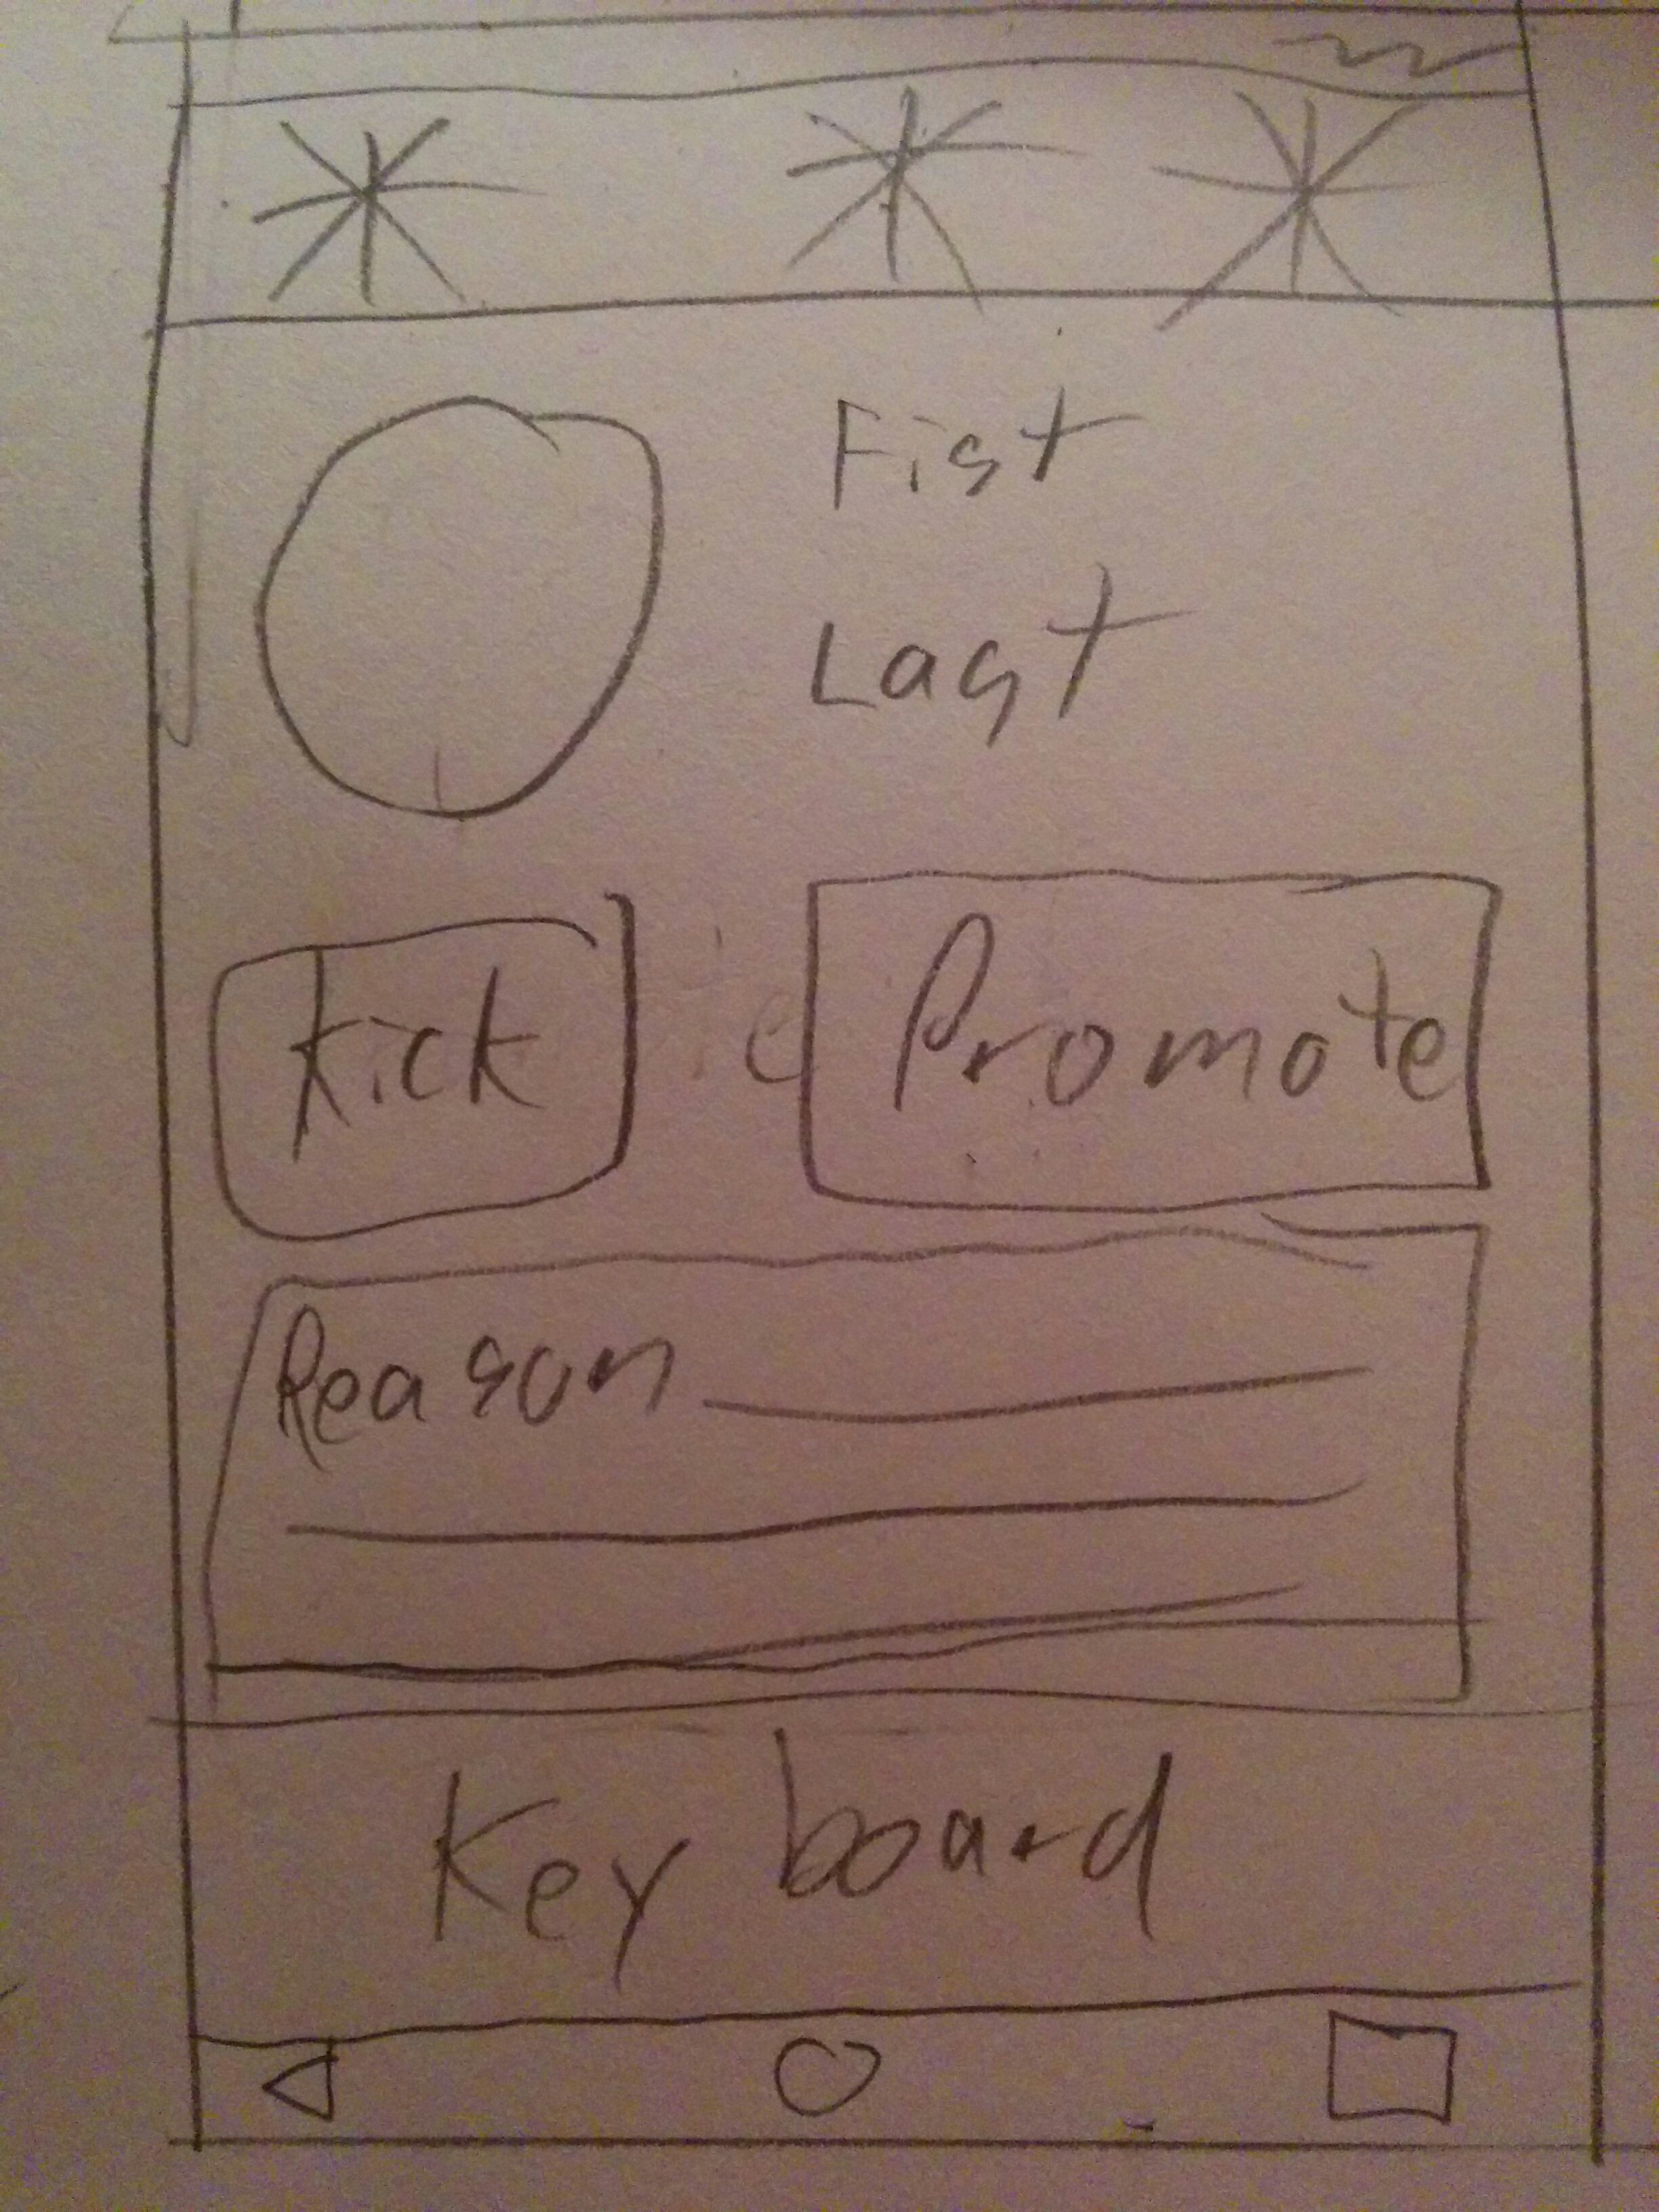 Fist
Last
Kick
Promote
Reason
Key board